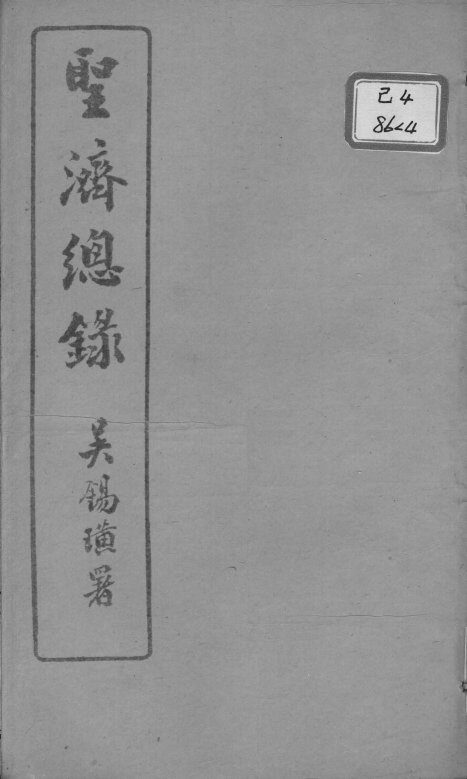 聖濟總錄
吴錫璜署
己4
8624